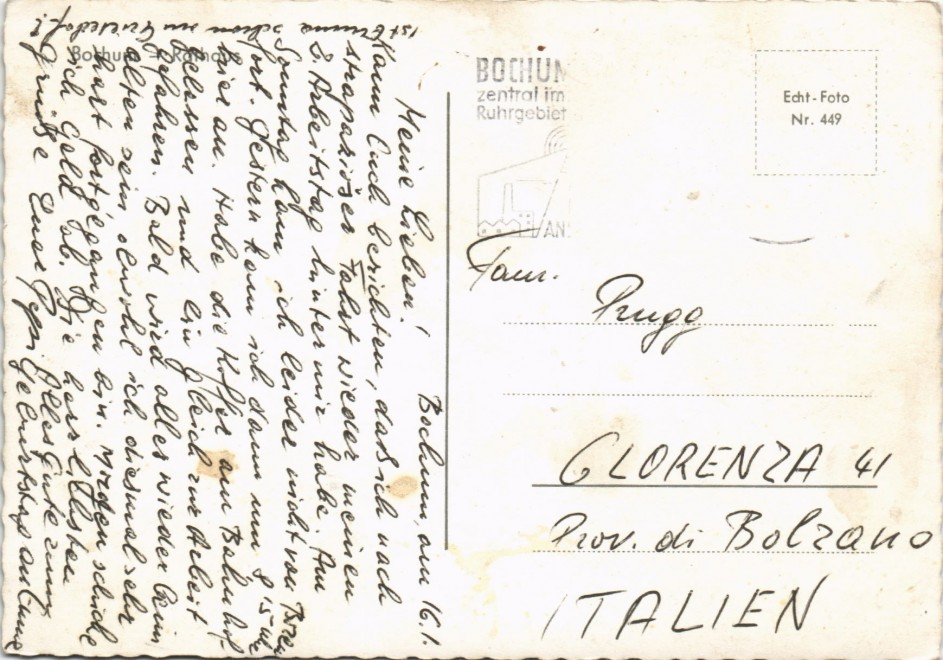 Bochum, am 16.1.
Meine Lieben!
Kann Euch berichten, dass ich nach
strapaziöser Fahrt wieder meinen
2. Arbeitstag hinter mir habe. Am
Sonntag kam ich leider nicht von
fort. Gestern kam ich dann um 8 15 Uhr
hier an. Habe die Koffer am Bahnhof
gelassen und bin gleich zur Arbeit
gefahren. Bald wird alles wieder beim
alten sein, obwohl ich diesmal sehr
hart fortgegangen bin. Morgen schicke
ich Geld ab. Die herzlichsten
Grüße Euer Alles Gute zum
Geburtstag
ist schon im
Bochum Rathaus
BOCHUM
zentral im
Ruhrgebiet
Echt-Foto
Nr. 449
Fam.
Prugg
GLORENZA 41
Prov. di Bolzano
ITALIEN